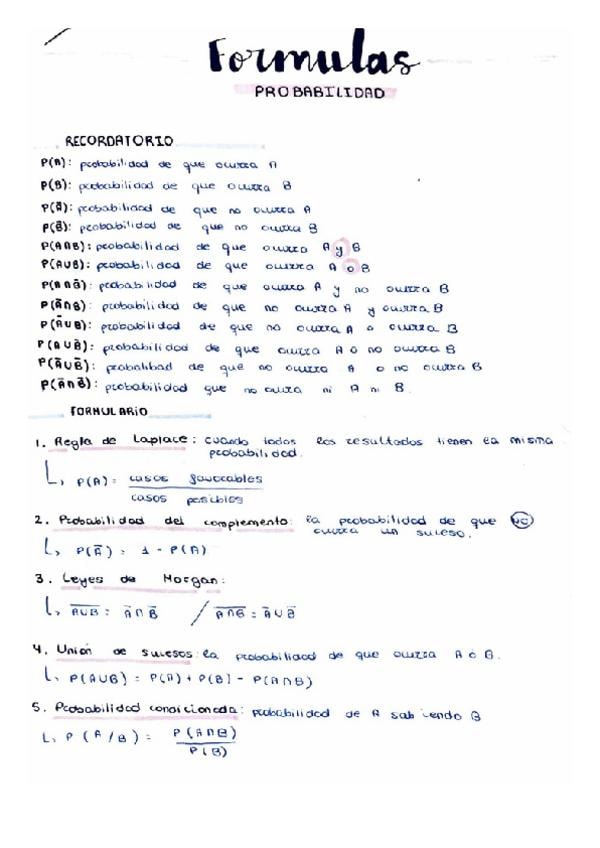 Formulas
PROBABILIDAD
RECORDATORIO
P(A): probabilidad de que ocurra A
P(B): probabilidad de que ocurra B
P(Ā): probabilidad de que no ocurra A
P(B̄): probabilidad de que no ocurra B
P(A∩B): probabilidad de que ocurra A y B
P(AUB): probabilidad de que ocurra A o B
P(A∩B̄): probabilidad de que ocurra A y no ocurra B
P(Ā∩B): probabilidad de que no ocurra A y ocurra B
P(ĀUB): probabilidad de que no ocurra A o ocurra B
P(AUB̄): probabilidad de que ocurra A o no ocurra B
P(ĀUB̄): probabilidad de que no ocurra A o no ocurra B
P(Ā∩B̄): probabilidad que no ocurra ni A ni B
FORMULARIO
1. Regla de Laplace: cuando todos los resultados tienen la misma
probabilidad.
P(A) = casos favorables
casos posibles
2. Probabilidad del complemento: la probabilidad de que no
ocurra un suceso.
P(Ā) = 1 - P(A)
3. Leyes de Morgan:
A̅U̅B̅ = Ā∩B̄ / A̅∩̅B̅ = ĀUB̄
4. Unión de sucesos: la probabilidad de que ocurra A o B.
P(AUB) = P(A) + P(B) - P(A∩B)
5. Probabilidad condicionada: probabilidad de A sabiendo B
P(A/B) = P(A∩B)
P(B)